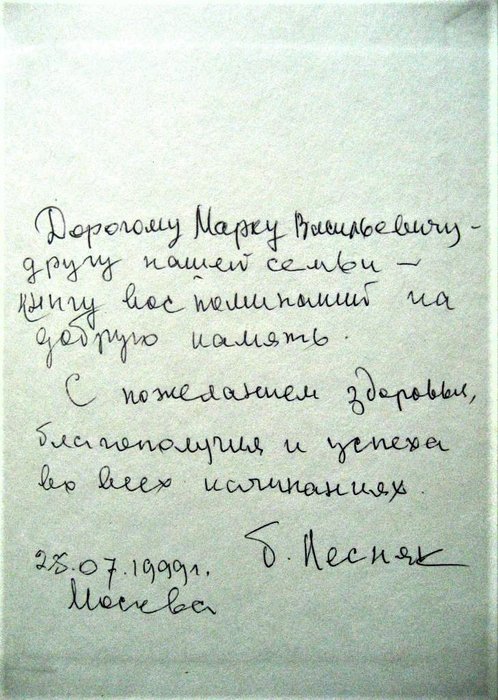 Дорогому Марку Васильевичу -
другу нашей семьи -
книгу воспоминаний на
добрую память.
С пожеланием здоровья,
благополучия и успеха
во всех начинаниях.
Б. Лесняк
28.07.1999г.
Москва